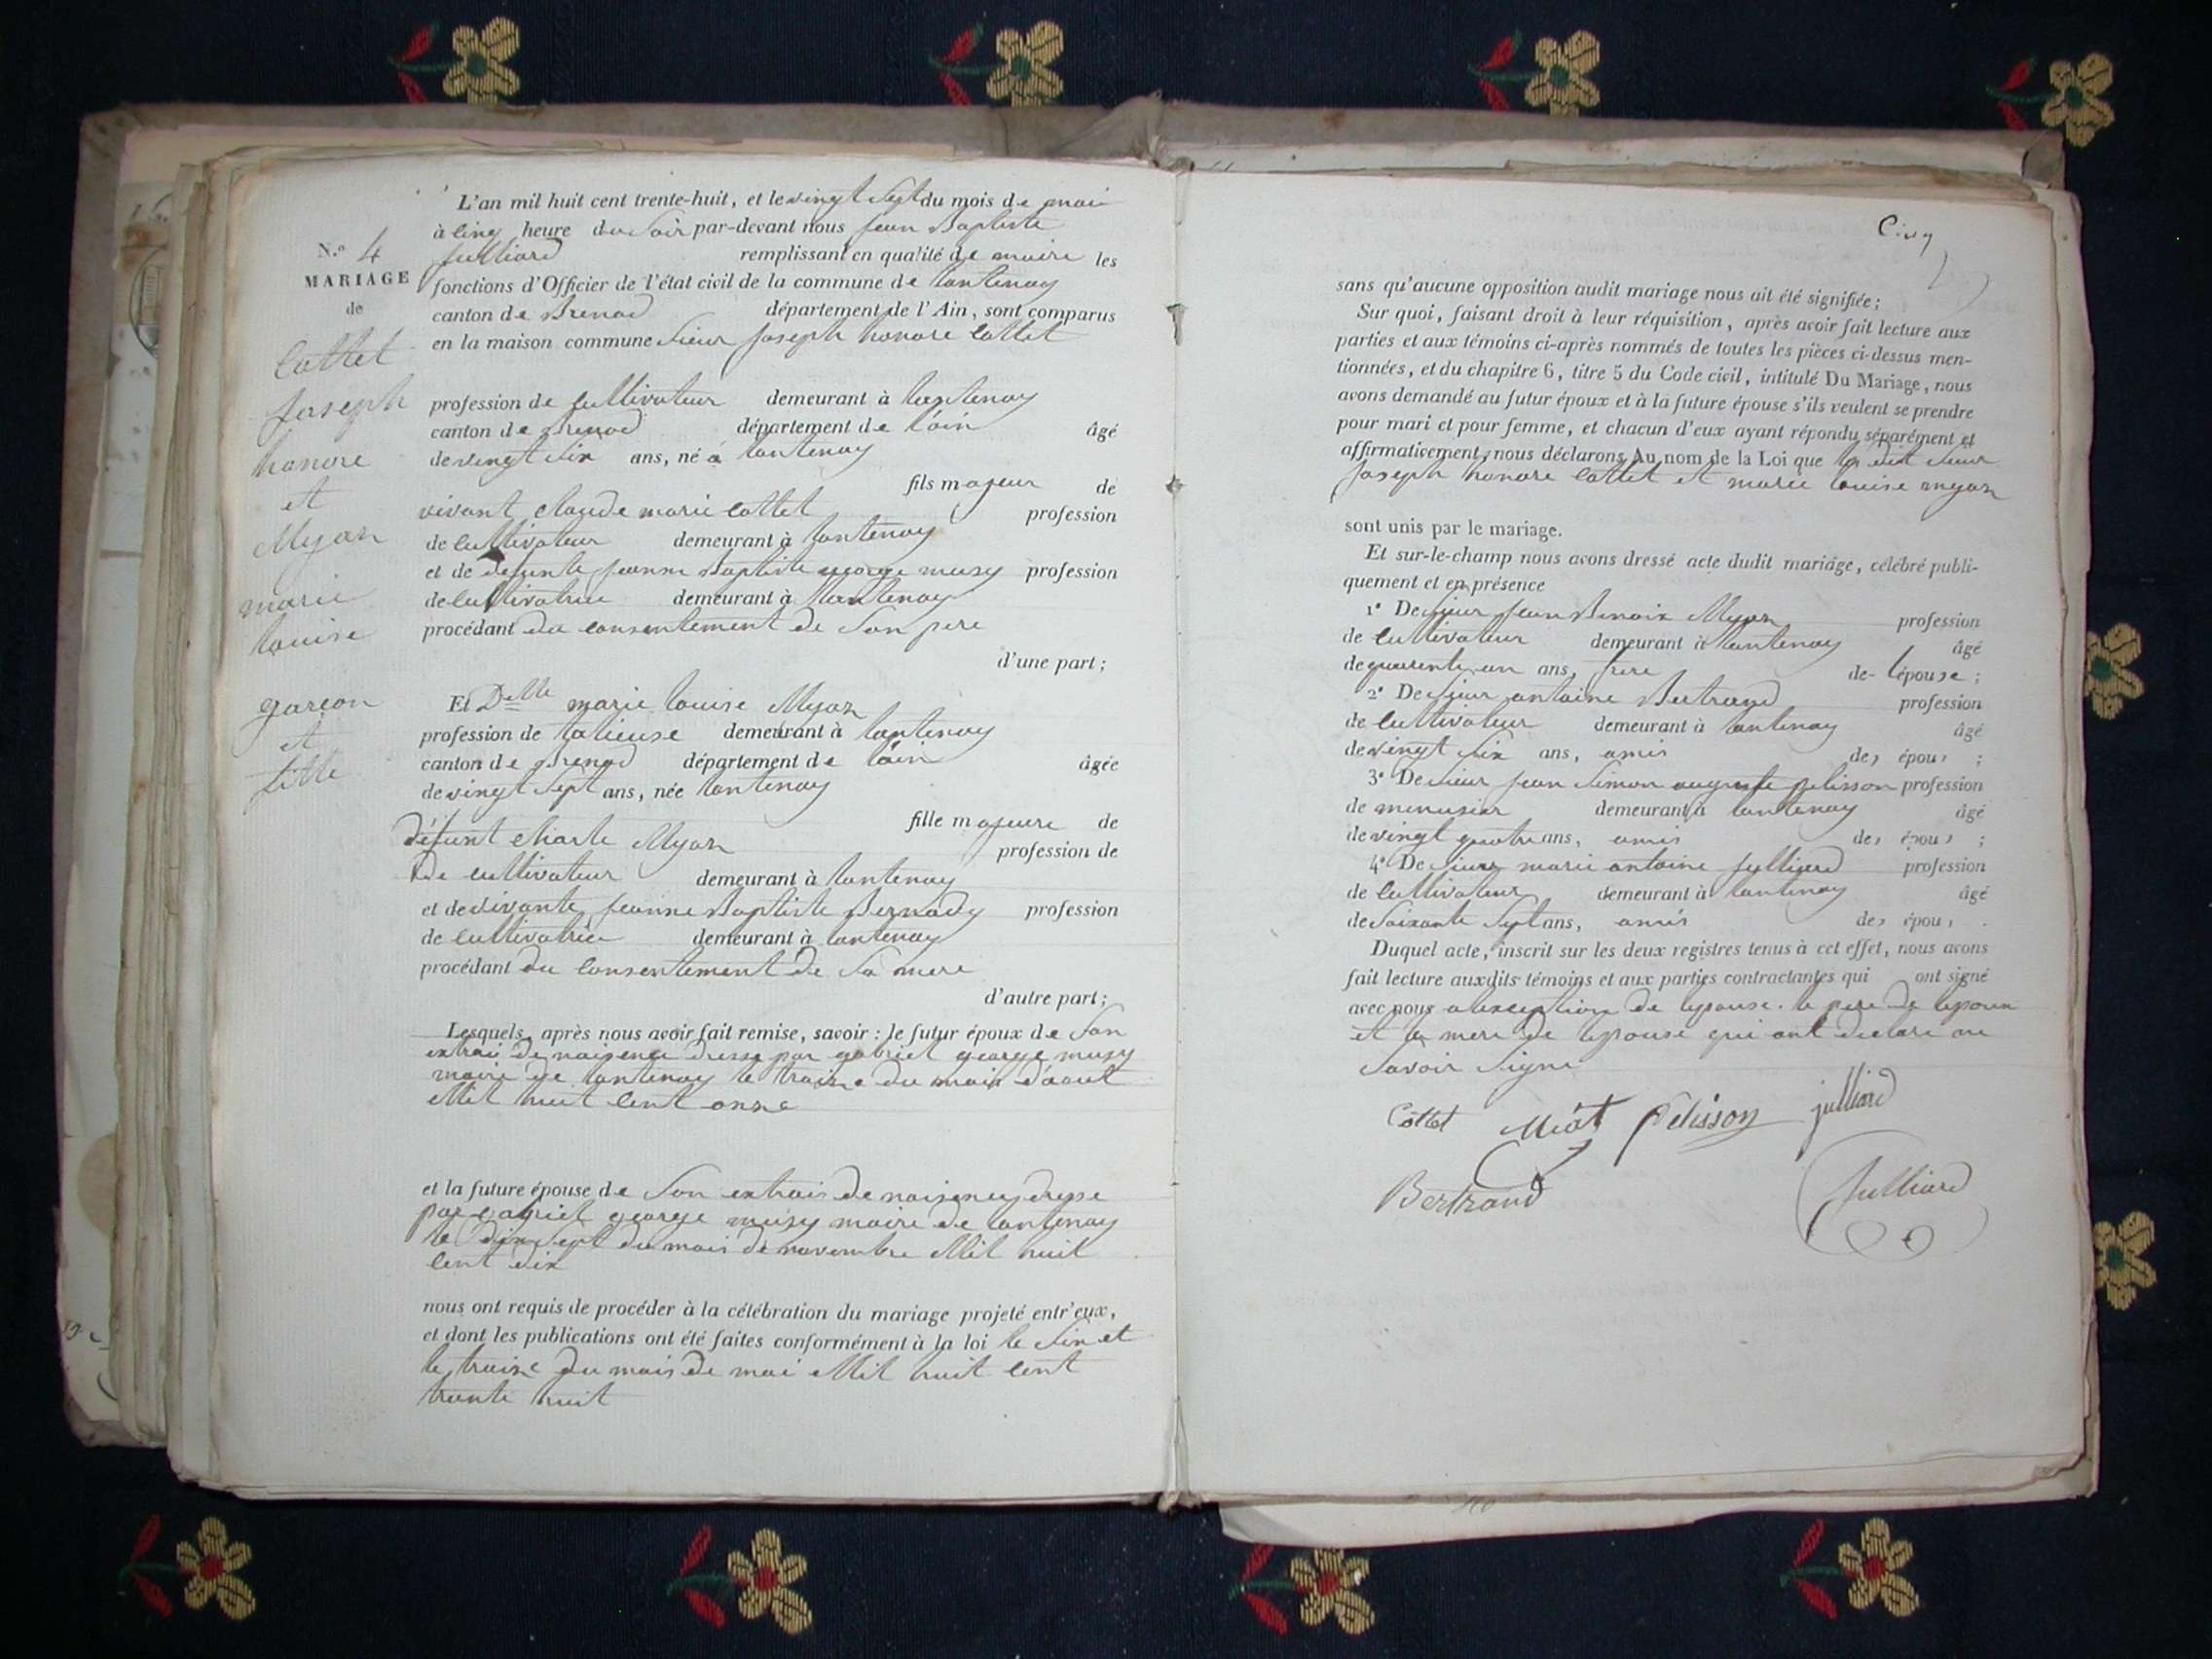 N.º 4
MARIAGE
de
Cottet
Joseph
honore
et
Myon
marie
louise
garcon
et
fille
L'an mil huit cent trente-huit, et le vingt Sept du mois de mai
à Cinq heure du Soir par-devant nous jean Baptiste
Julliard remplissant en qualité de maire les
fonctions d'Officier de l'état civil de la commune de lantenay
canton de Brenod département de l'Ain, sont comparus
en la maison commune Sieur Joseph honore Cottet
profession de Cultivateur demeurant à lantenay
canton de Brenod département de l'ain âgé
de vingt Six ans, né à lantenay
fils majeur de
vivant Claude marie Cottet profession
de Cultivateur demeurant à lantenay
et de defunte jeanne Baptiste george musy profession
de Cultivatrice demeurant à lantenay
procédant du consentement de Son pere
d'une part;
Et Delle marie louise Myon
profession de talieuse demeurant à lantenay
canton de Brenod département de l'ain âgée
de vingt Sept ans, née lantenay
fille majeure de
défunt Charle Myon profession de
De cultivateur demeurant à lantenay
et de vivante jeanne Baptiste Bernady profession
de Cultivatrice demeurant à lantenay
procédant du Consentement de Sa mere
d'autre part;
Lesquels, après nous avoir fait remise, savoir: le futur époux de Son
extrai de naisence dresse par gabriel george musy
maire de lantenay le traize du mois d'aout
Mil huit Cent onze
et la future épouse de Son extrais de naisence dresse
par gabriel george musy maire de lantenay
le dix Sept du mois de novembre Mil huit
Cent dix
nous ont requis de procéder à la célébration du mariage projeté entr'eux,
et dont les publications ont été faites conformément à la loi le Six et
le traize du mois de mai Mil huit Cent
trante huit
Cinq
sans qu'aucune opposition audit mariage nous ait été signifiée;
Sur quoi, faisant droit à leur réquisition, après avoir fait lecture aux
parties et aux témoins ci-après nommés de toutes les pièces ci-dessus men-
tionnées, et du chapitre 6, titre 5 du Code civil, intitulé Du Mariage, nous
avons demandé au futur époux et à la future épouse s'ils veulent se prendre
pour mari et pour femme, et chacun d'eux ayant répondu séparément et
affirmativement, nous déclarons Au nom de la Loi que le dit Sieur
Joseph honore Cottet et marie louise myon
sont unis par le mariage.
Et sur-le-champ nous avons dressé acte dudit mariage, célébré publi-
quement et en présence
1º De Sieur jean Benoix Myon profession
de Cultivateur demeurant à lantenay âgé
de quarente un ans, frere de l'épouse;
2º De Sieur antoine Bertrand profession
de Cultivateur demeurant à lantenay âgé
de vingt Six ans, amis des épous;
3º De Sieur jean Simon auguste pelisson profession
de menusier demeurant à lantenay âgé
de vingt quatre ans, amis des épous;
4º De Sieur marie antoine julliard profession
de Cultivateur demeurant à lantenay âgé
de Soixante Sept ans, amis des épous.
Duquel acte, inscrit sur les deux registres tenus à cet effet, nous avons
fait lecture auxdits témoins et aux parties contractantes qui ont signé
avec nous a lexception de lepouse. le pere de lepoux
et la mere de lepouse qui ont declare ne
Savoir Signe
Cottet Miot Pelisson julliard
Bertrand Julliard